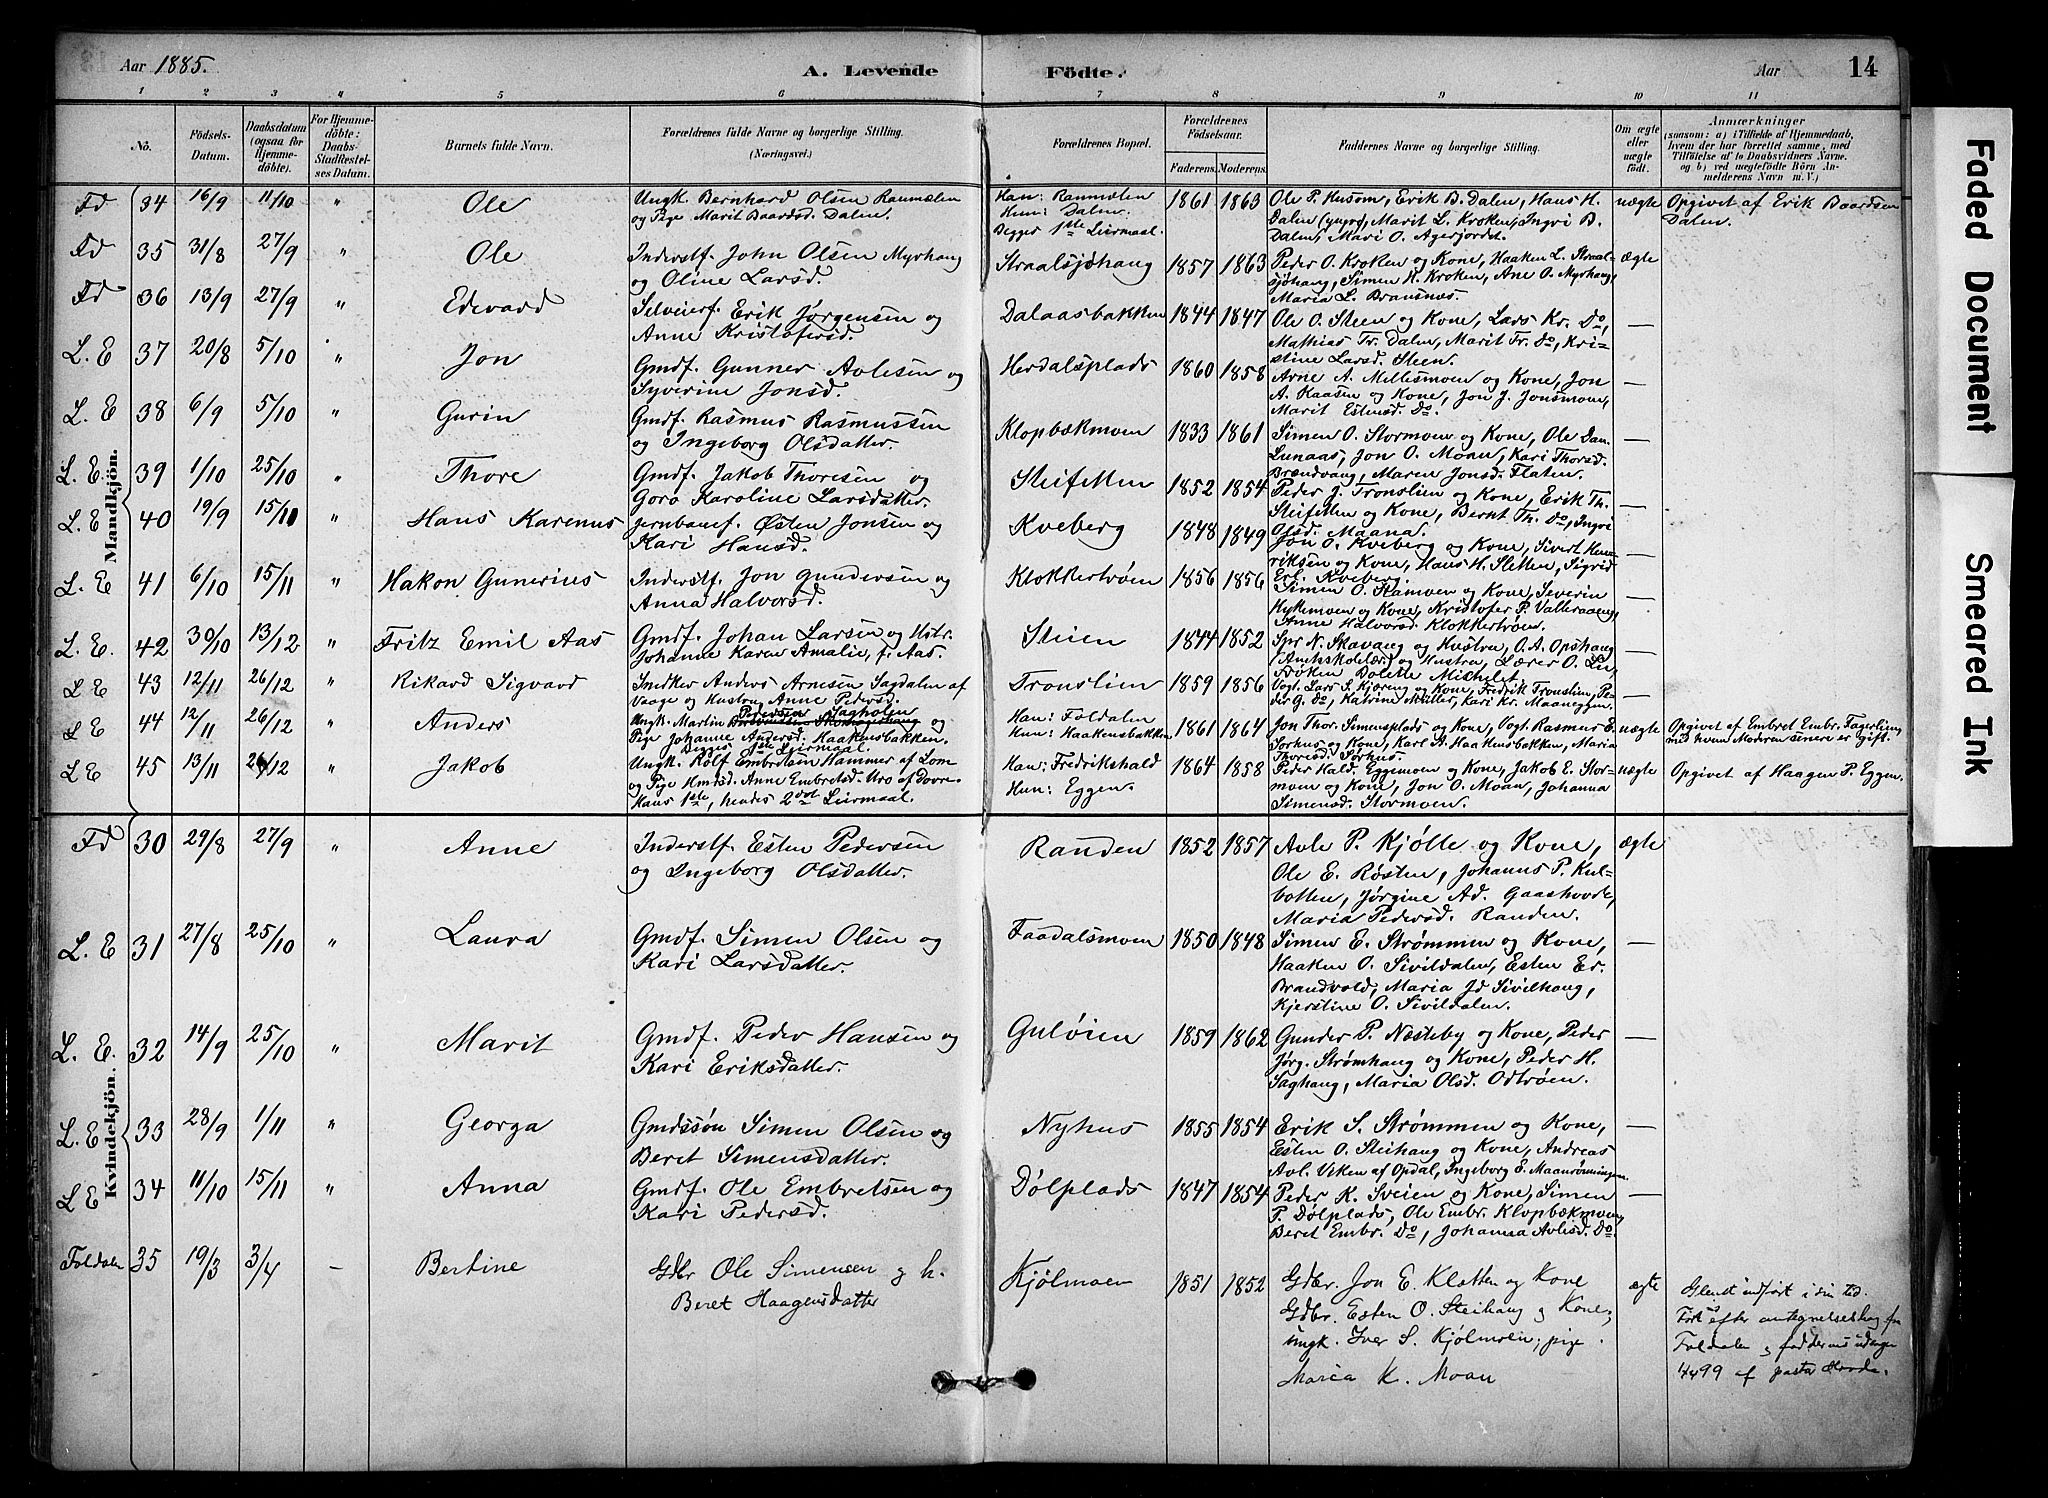 Aar 1885.
A. Levende Födte.
Aar 14
1 2 3 4 5 6 7 8 9 10 11
No.
Födsels-Datum.
Daabsdatum (ogsaa for Hjemmedöbte).
For Hjemmedöbte: Daabs-Stadfæstelses Datum.
Barnets fulde Navn.
Forældrenes fulde Navne og borgerlige Stilling. (Næringsvei.)
Forældrenes Bopæl.
Forældrenes Födselsaar.
Faderens. Moderens.
Faddernes Navne og borgerlige Stilling.
Om ægte eller uægte födt.
Anmærkninger
(saasom: a) i Tilfælde af Hjemmedaab, hvem der har forrettet samme, med Tilföielse af to Daabsvidners Navne, og b) ved uægtefödte Börn Anmelderens Navn m. V.)
Mandkjön.
Fd 34 16/9 11/10 " Ole
Ungk. Bernhard Olsen Ranmælen
og Pige Marit Baardsd. Dalen.
Han: Ranmælen
Hun: Dalen.
Begges 1ste Leirmaal.
1861 1863
Ole P. Husom, Erik B. Dalen, Hans H.
Dalen (yngre), Marit L. Kroken, Ingri B.
Dalen, Mari O. Agerjordet.
uægte
Opgivet af Erik Baardsen
Dalen.
Fd 35 31/8 27/9 " Ole
Inderstf. John Olsen Myrhaug
og Oline Larsd.
Straalsjøhaug 1857 1863
Peder O. Kroken og Kone, Haaken L. Straal-
sjöhaug, Simen H. Kroken, Ane O. Myrhaug,
Maria L. Bransnes.
ægte
Fd 36 13/9 27/9 " Edvard
Selveierf. Erik Jørgensen og
Anne Kristofersd.
Dalaasbakken 1844 1847
Ole O. Steen og Kone, Lars Kr. Do,
Mathias Tr. Dalen, Marit Tr. Do, Kri-
stine Larsd. Steen.
—
L. E 37 20/8 5/10 " Jon
Gmdf. Gunner Avlesen og
Syverine Jonsd.
Herdalsplads 1860 1858
Arne A. Millesmoen og Kone, Jon
A. Kaasen og Kone, Jon J. Jonsmoen,
Marit Estensd. Do.
—
L. E 38 6/9 5/10 " Gurin
Gmdf. Rasmus Rasmussen
og Ingeborg Olsdatter.
Klopbækmoen 1833 1861
Simen O. Stormoen og Kone, Ole Dan-
Lunaas, Jon O. Moan, Kari Thorsd.
Brændvang, Maren Jonsd. Flaten.
—
L. E. 39 1/10 25/10 " Thore
Gmdf. Jakob Thoresen og
Goro Karoline Larsdatter.
Steifetten 1852 1854
Peder J. Tronslien og Kone, Erik Th.
Steifetten og Kone, Bernt Th. Do, Ingri
Olsd. Maana.
—
L. E 40 19/9 15/11 " Hans Karenus
jernbanef. Østen Jonsen og
Kari Hansd.
Kveberg 1848 1849
Jon O. Kveberg og Kone, Sivert Hen-
riksen og Kone, Hans H. Sletten, Sigrid
Erl. Kveberg.
—
L. E 41 6/10 15/11 " Hakon Gunerius
Inderstf. Jon Gundersen og
Anna Halvorsd.
Klokkertrøen 1856 1856
Simen O. Kamoen og Kone, Severin
Kykkemoen og Kone, Kristofer P. Valleraaeng,
Anne Halvorsd. Klokkertrøen.
—
L. E. 42 30/10 13/12 " Fritz Emil Aas
Gmdf. Johan Larsen og Hstr.
Johanne Karen Amalie, f. Aas.
Steien 1844 1852
Spr N. Skavang og Hustru, O. A. Opshaug
(Amtskolelær.) og Hustru, Lærer O. Lie,
Frøken Dolette Michelet.
—
L E 43 12/11 26/12 " Rikard Sigvard
Snedker Anders Arnesen Sagdalen af
Vaage og Hustru Anne Pedersd.
Tronslien 1859 1856
Vogt. Lars S. Kjæreng og Kone, Fredrik Tronslien, Pe-
der G. Do, Katrine Müller, Kari Kr. Maaneggen.
—
L E 44 12/11 26/12 " Anders
Pedersen Sagholen
Ungk. Martin og
Pige Johanne Andersd. Haakensbakken.
Begges 1ste Leirmaal.
Han: Foldalen
Hun: Haakensbakken
1861 1864
Jon Thor. Simensplads og Kone, Vogt. Rasmus E.
Sorhus og Kone, Karl A. Haakensbakken, Maria
Thorisd. Sorhus.
uægte
Opgivet af Embret Embr. Fagerlien,
med hvem Moderen senere er gift.
L E 45 13/11 26/12 " Jakob
Ungk. Rolf Embretsen Hammer af Lom
og Pige Hmdsd. Anne Embretsd. Uro af Dovre.
Hans 1ste, hendes 2det Leirmaal.
Han: Fredrikshald
Hun: Eggen.
1864 1858
Peder Hald. Eggemoen og Kone, Jakob E. Stor-
moen og Kone, Jon O. Moan, Johanna
Simensd. Stormoen.
uægte
Opgivet af Haagen P. Eggen.
Kvindekjön.
Fd 30 29/8 27/9 " Anne
Inderstf. Esten Pedersen
og Ingeborg Olsdatter.
Randen 1852 1857
Avle P. Kjølle og Kone,
Ole E. Røsten, Johannes P. Kul-
botten, Jørgine Ad. Gaashovde,
Maria Pedersd. Randen.
ægte
L. E 31 27/8 25/10 " Laura
Gmdf. Simen Olsen og
Kari Larsdatter.
Faadalsmoen 1850 1848
Simen E. Strømmen og Kone,
Haaken O. Sivildalen, Esten Er.
Brandvold, Maria Jd Sivilhaug,
Kjerstine O. Sivildalen.
—
L. E. 32 14/9 25/10 " Marit
Gmdf. Peder Hansen og
Kari Eriksdatter.
Guløien 1859 1862
Gunder P. Næsteby og Kone, Peder
Jørg. Strømhaug og Kone, Peder H.
Saghaug, Maria Olsd. Odtrøen.
—
L. E 33 28/9 1/11 " Georga
Gmdssøn Simen Olsen og
Beret Simensdatter.
Nyhus 1855 1854
Erik S. Strømmen og Kone,
Esten O. Steihaug og Kone, Andreas
Avl. Viken af Opdal, Ingeborg E. Maanrønningen
—
L E 34 11/10 15/11 " Anna
Gmdf. Ole Embretsen og
Kari Pedersd.
Dølplads 1847 1854
Peder K. Sveien og Kone, Simen
P. Dølplads, Ole Embr. Klopbækmoen,
Beret Embr. Do, Johanna Avlesd. Do.
—
Foldalen 35 19/3 3/4 — Bertine
Gdbr Ole Simensen og h.
Beret Haagensdatter
Kjølmoen 1851 1852
Gdbr. Jon E. Kletten og Kone
Gdbr. Esten O. Steihaug og Kone;
ungk. Iver S. Kjølmoen; pige
Maria K. Moan
ægte
Glemt indført i sin tid.
efter antegnelsesbog fra
Foldalen og faddernes udsagn
4499 af pastor
Faded Document
Smeared Ink